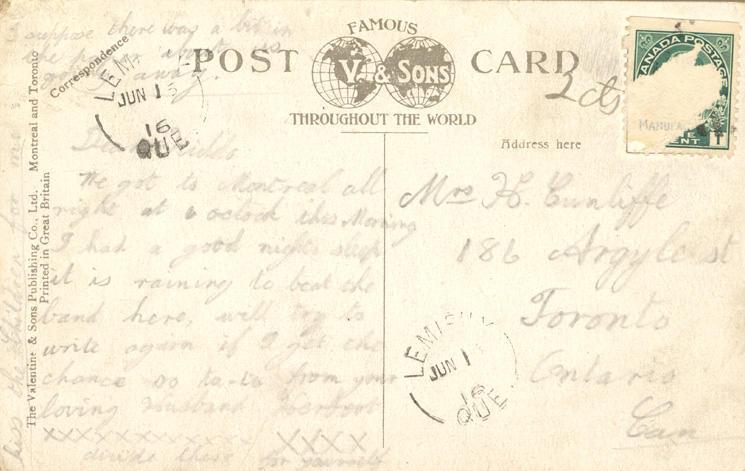 suppose there was a bit in
the paper about us
going away.
Correspondence
FAMOUS
POST CARD
V. & SONS
THROUGHOUT THE WORLD
LEM
JUN 15
16
QUE
2cts
CANADA POSTAGE
MANUFA
1
CENT
Address here
Dear
We got to Montreal all
right at oclock this Morning
I had a good nights sleep
it is raining to beat the
band here, will try to
write again if I get the
chance so ta-ta from your
loving Husband
XXXXXXXXXXXX XXXX
divide these for yourself
Kiss the Children for me
Mrs H. Cunliffe
186 Argyle st
Toronto
Ontario
Can
JUN 1
16
QUE.
The Valentine & Sons Publishing Co., Ltd. Montreal and Toronto
Printed in Great Britain